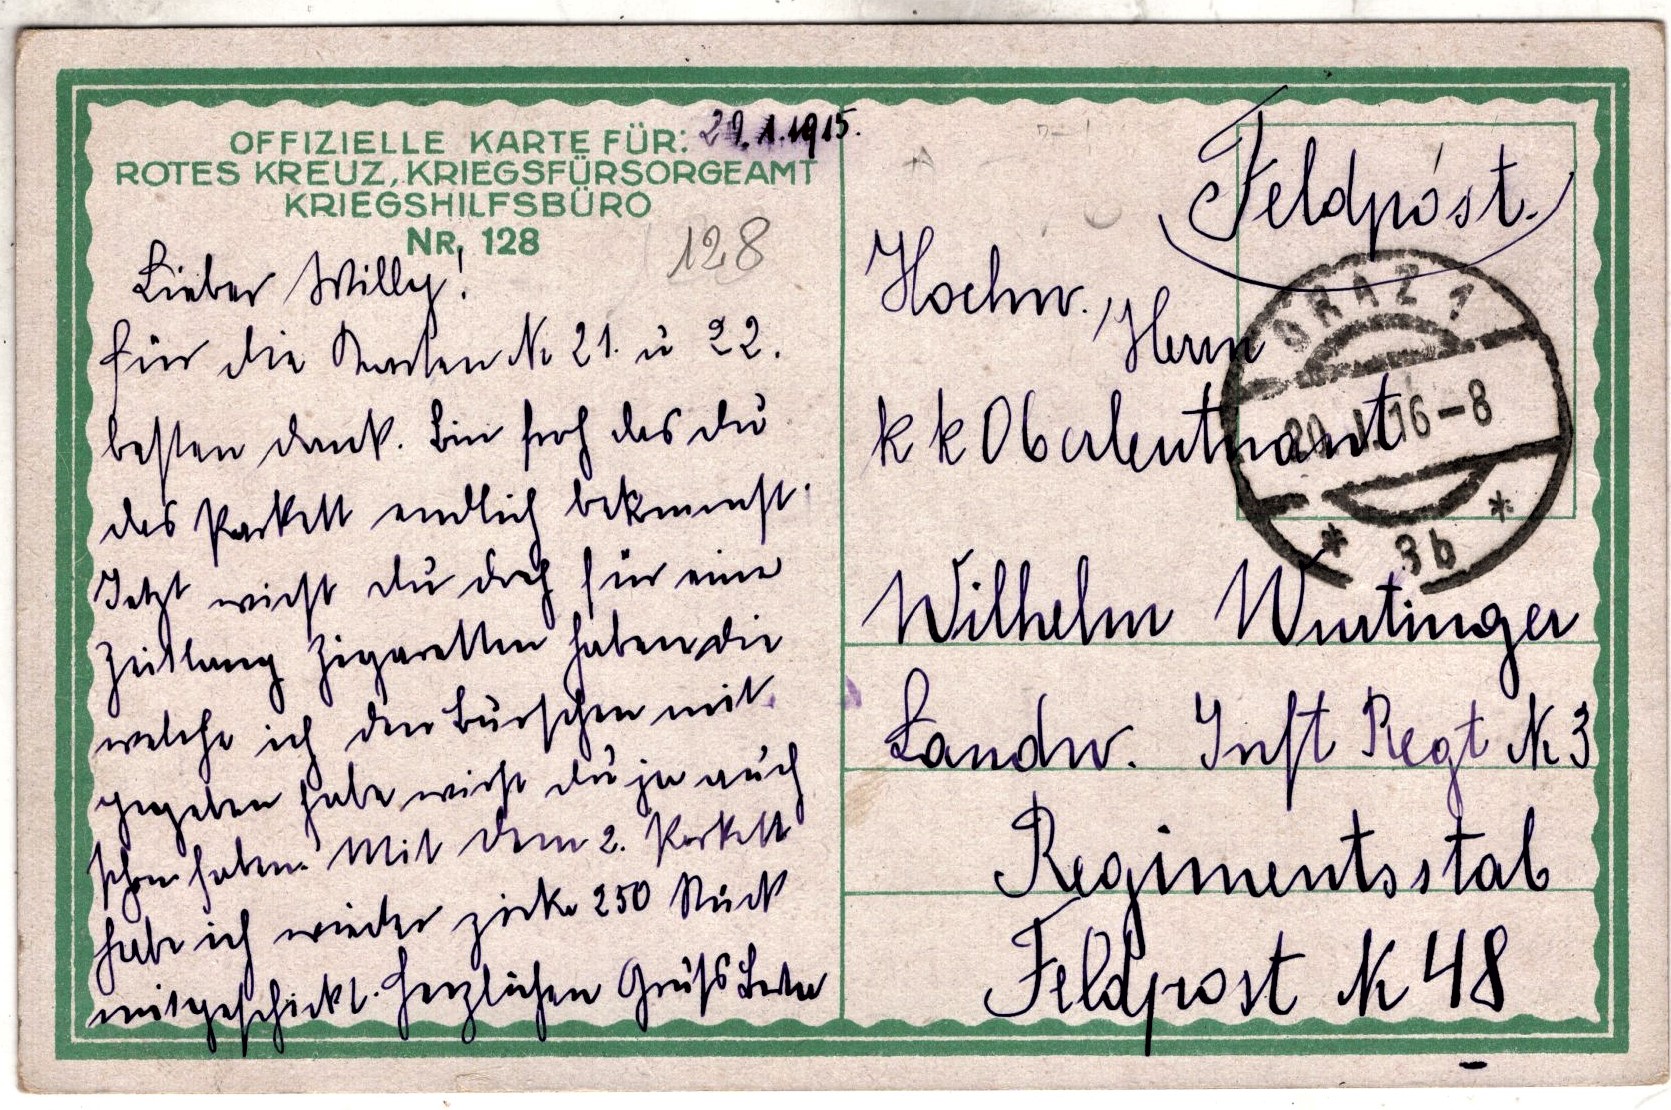 OFFIZIELLE KARTE FÜR:
29.1.1915.
ROTES KREUZ, KRIEGSFÜRSORGEAMT
KRIEGSHILFSBÜRO
NR. 128
128
Lieber Willy!
Für die Karten No 21. u 22.
besten dank. Bin froh das du
das Parkett endlich bekommst.
Jetzt wirst du doch für eine
Zeitlang Zigaretten haben die
welche ich den Burschen mit
gegeben habe wirst du ja auch
schon haben. Mit dem 2. Parkett
habe ich wieder zirka 250 Stück
mitgeschickt. Herzlichen Gruß
Feldpost.
Hochw. Herrn
k k Oberleutnant
Wilhelm Wurtinger
Landw. Inft Regt No 3
Regimentsstab
Feldpost No 48
GRAZ 1
16-8
* 3b *